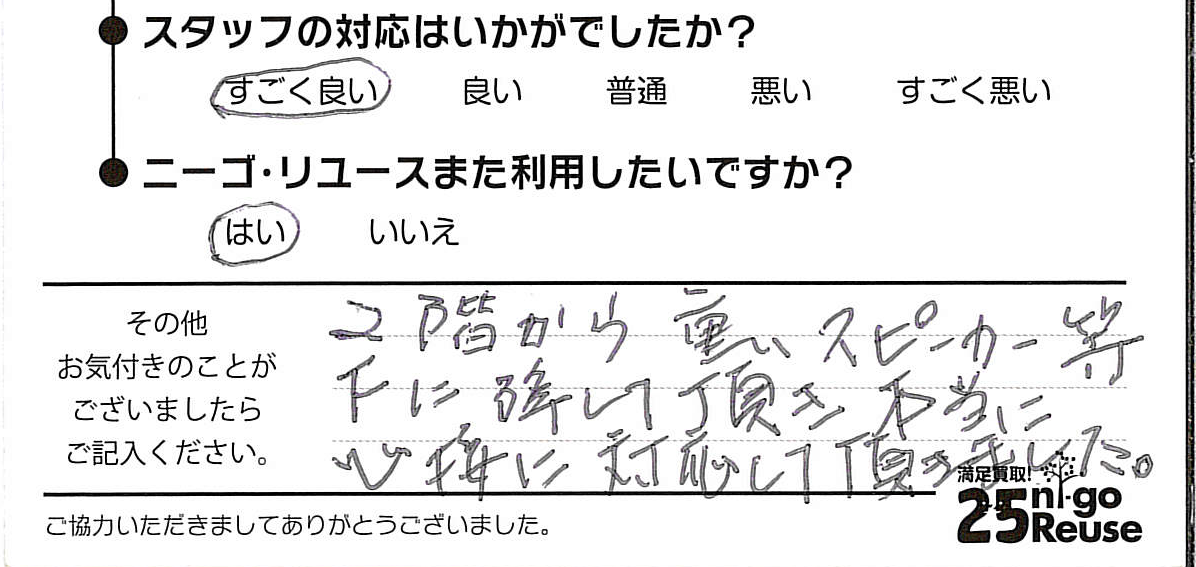 スタッフの対応はいかがでしたか?
すごく良い 良い 普通 悪い すごく悪い
ニーゴ・リユースまた利用したいですか?
はい いいえ
その他
お気付きのことが
ございましたら
ご記入ください。
2階から重いスピーカー等
下に降して頂き本当に
に対応して頂きました。
ご協力いただきましてありがとうございました。
満足買取!
25 ni-go
Reuse